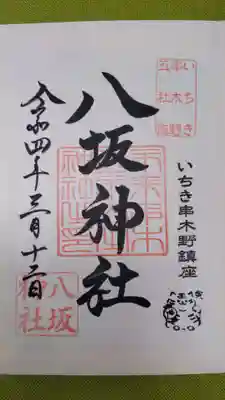 いちき
串木野
五社
いちき串木野鎮座
八坂神社
八坂
神社
令和四年三月十二日